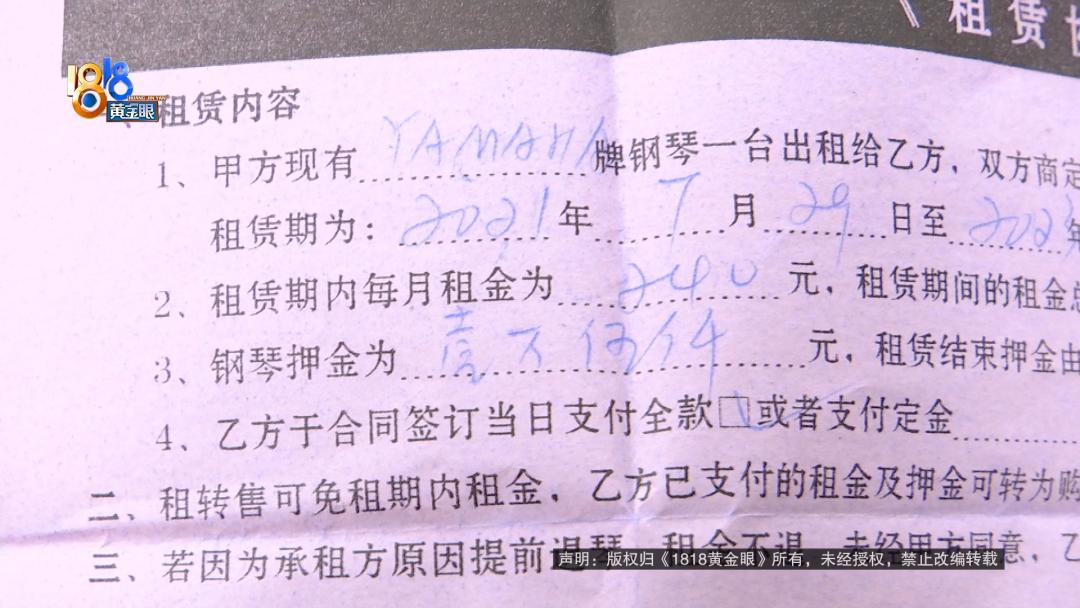 《租赁
1818
HUANG JIN YAN
黄金眼
、租赁内容
1、甲方现有YAMAHA牌钢琴一台出租给乙方，双方商定
租赁期为：2021年7月29日至2023年
2、租赁期内每月租金为240元，租赁期间的租金总
3、钢琴押金为壹万伍仟元，租赁结束押金由
4、乙方于合同签订当日支付全款□或者支付定金
二、租转售可免租期内租金，乙方已支付的租金及押金可转为购
三、若因为承租方原因提前退琴，租金不退，未经甲方同意，乙
声明：版权归《1818黄金眼》所有，未经授权，禁止改编转载